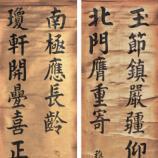 玉節鎮嚴疆仰
北門膺重寄
瓊軒開疊喜正
南極應長齡